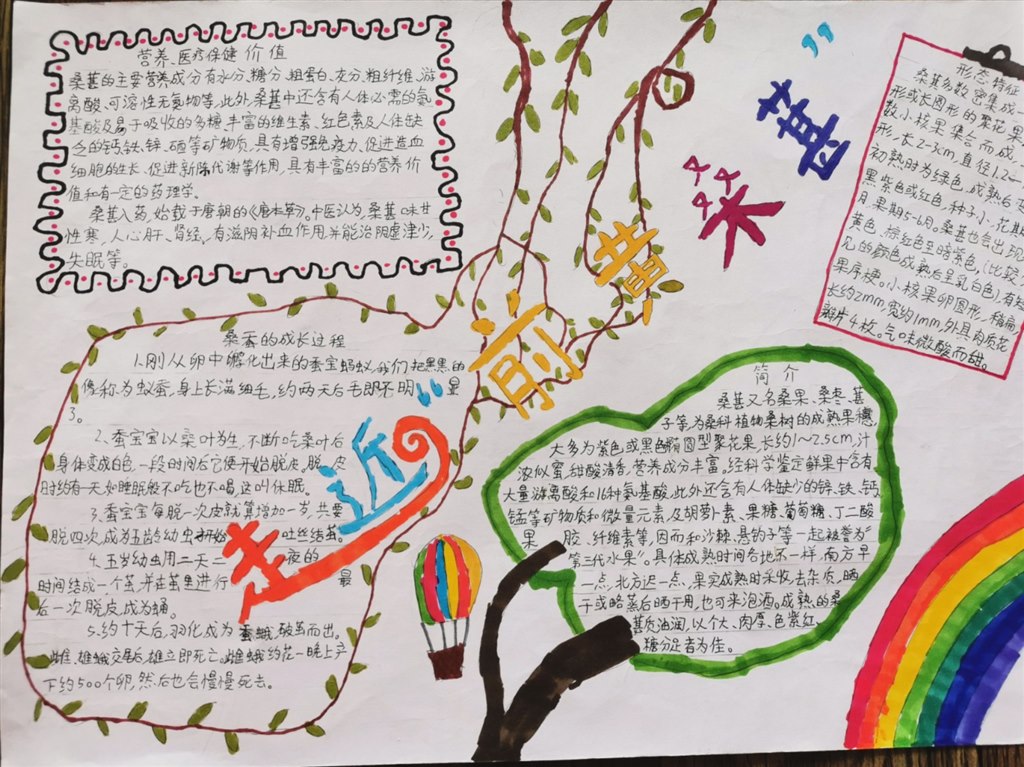 营养、医疗保健价值
桑葚的主要营养成分有水分、糖分、粗蛋白、灰分、粗纤维、游
离酸、可溶性无氮物等,此外,桑葚中还含有人体必需的氨
基酸及易于吸收的多糖、丰富的维生素、红色素及人体缺
乏的钙、铁、锌、硒等矿物质,具有增强免疫力、促进造血
细胞的生长、促进新陈代谢等作用,具有丰富的的营养价
值和有一定的药理学。
桑葚入药,始载于唐朝的《唐本草》。中医认为,桑葚味甘
性寒,入心肝、肾经,有滋阴补血作用,并能治阴虚津少,
失眠等。
走近“前黄桑葚”
形态特征
桑葚多数密集成一
形或长圆形的聚花果
数小核果集合而成,
形,长2-3cm,直径1.2一
初熟时为绿色,成熟后变
黑紫色或红色,种子小,花期
月,果期5-6月。桑葚也会出现
黄色、棕红色至暗紫色,(比较
见的颜色成熟后呈乳白色),有短
果序梗。小核果卵圆形,稍扁,
长约2mm,宽约1mm,外具肉质花
片4枚。气味微酸而甜。
桑蚕的成长过程
1.刚从卵中孵化出来的蚕宝宝蚂蚁,我们把黑黑的
像称为蚁蚕,身上长满细毛,约两天后毛即不明显
3。
2、蚕宝宝以桑叶为生,不断吃桑叶后
身体变成白色,一段时间后它便开始脱皮。脱皮
时约有一天如睡眠般不吃也不喝,这叫休眠。
3、蚕宝宝每脱一次皮就算增加一岁,共要
脱四次,成为五龄幼虫开始吐丝结茧。
4.五岁幼虫用二天二夜的
时间结成一个茧,并在茧里进行最
后一次脱皮,成为蛹。
5.约十天后,羽化成为蚕蛾,破茧而出。
雌、雄蛾交尾后,雄立即死亡。雌蛾约花一晚上产
下约500个卵,然后也会慢慢死去。
简介
桑葚又名桑果、桑枣、葚
子等为桑科植物桑树的成熟果穗,
大多为紫色或黑色椭圆型聚花果,长约1~2.5cm,汁
浓似蜜,甜酸清香,营养成分丰富。经科学鉴定鲜果中含有
大量游离酸和16种氨基酸,此外还含有人体缺少的锌、铁、钙、
锰等矿物质和微量元素,及胡萝卜素、果糖、葡萄糖、丁二酸
果胶、纤维素等,因而和沙棘、悬钩子等一起被誉为“
第三代水果”。具体成熟时间各地不一样,南方早
一点,北方迟一点、果实成熟时采收,去杂质,晒
干或略蒸后晒干用,也可来泡酒。成熟的桑
葚质油润,以个大、肉厚、色紫红、
糖分足者为佳。